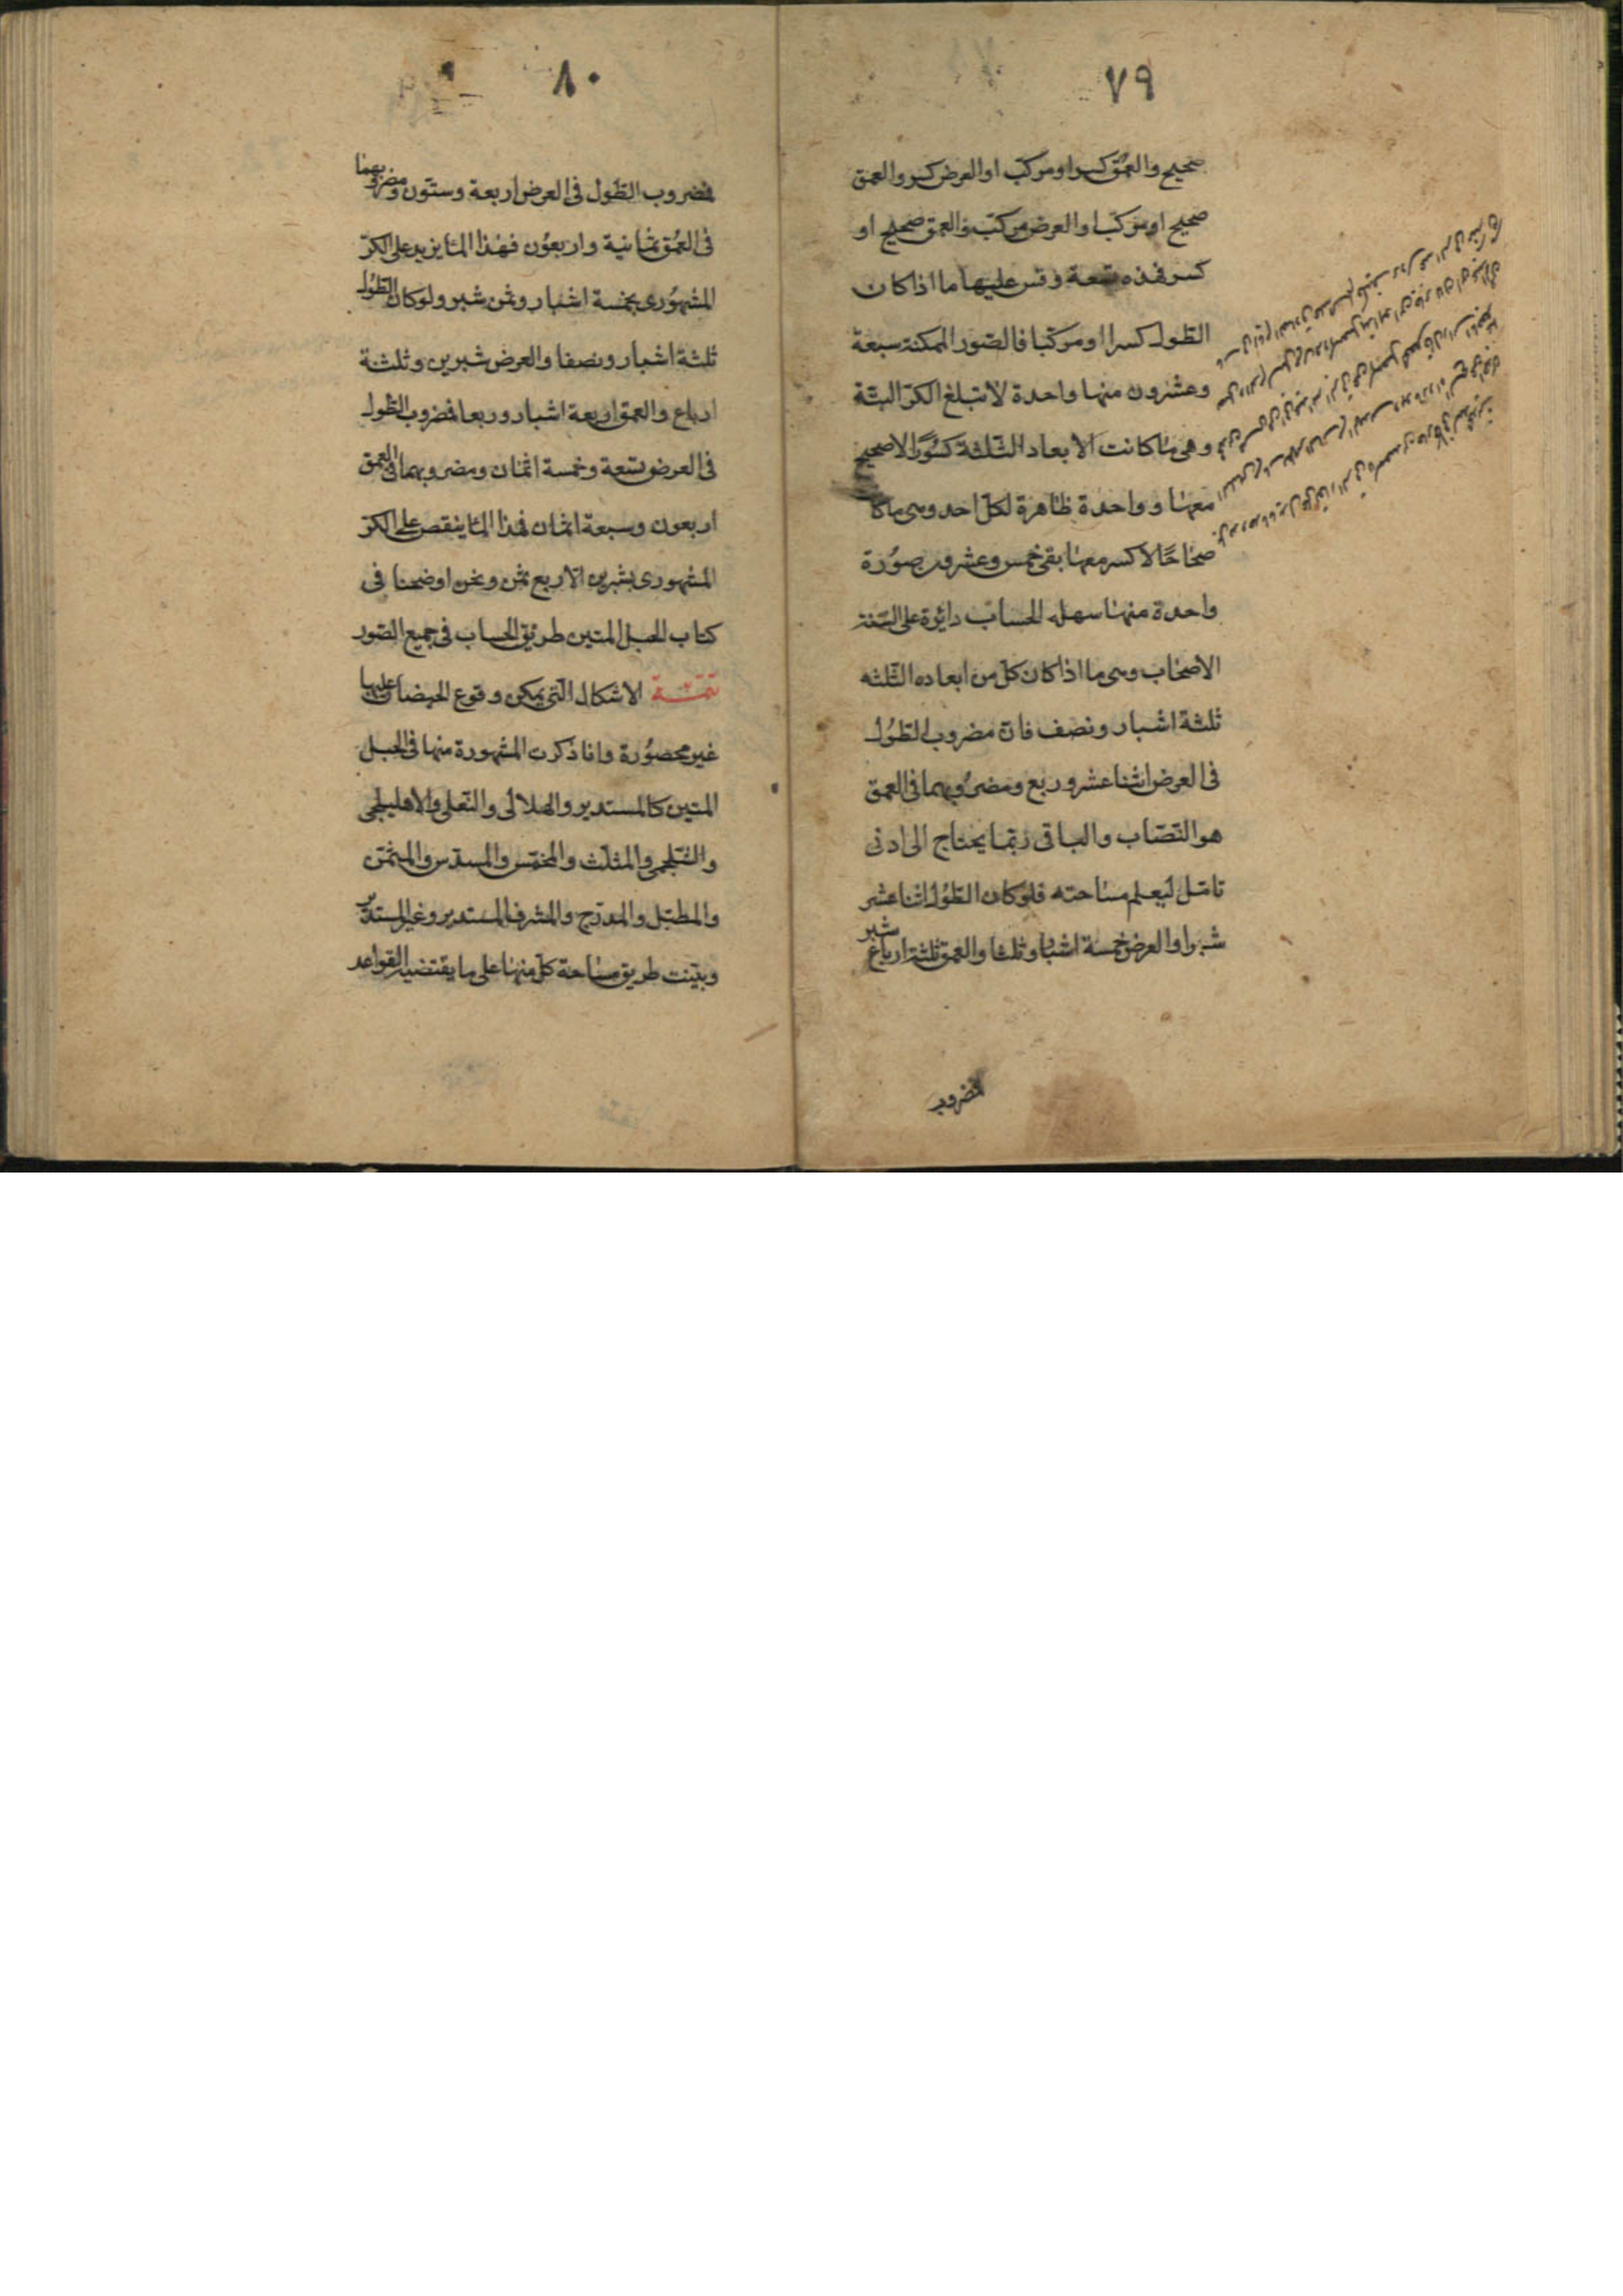 ٧٩
صحيح والعمق كسر او مركب او العرض كسر والعمق
صحيح او مركب او العرض مركب والعمق صحيح او
كسر فهذه تسعة وقس عليها ما اذا كان
الطول كسرا او مركبا فالصور الممكنة سبعة
وعشرون منها واحدة لا تبلغ الكرّ البتّة
وهى ما كانت الابعاد الثلثة كسورًا لا صحيح
معها و واحدة ظاهرة لكل احد وهى ما كا
صحاحًا لا كسر معها بقى خمس وعشرون صورة
واحدة منها سهلة الحساب دائرة على السنة
الاصحاب وهى ما اذا كان كل من ابعاده الثلثه
ثلثة اشبار ونصف فان مضروب الطول
فى العرض اثنا عشر وربع ومضروبهما فى العمق
هو النصاب والباقى ربما يحتاج الى ادنى
تامّل ليعلم مساحته فلو كان الطول اثنا عشر
شبرا والعرض خمسة اشبار وثلثا والعمق ثلثة ارباع شبر
فمضروب
٨٠
فمضروب الطول فى العرض اربعة وستّون ومضروبهما
فى العمق ثمانية واربعون فهذا الماء يزيد على الكرّ
المشهورى بخمسة اشبار وثمن شبر ولو كان الطول
ثلثة اشبار ونصفا والعرض شبرين وثلثة
ارباع والعمق اربعة اشبار وربعا فمضروب الطول
فى العرض تسعة وخمسة اثمان ومضروبهما فى العمق
اربعون وسبعة اثمان فهذا الماء ينقص على الكرّ
المشهورى بشبرين الا ربع ثمن ونحن اوضحنا فى
كتاب الحبل المتين طريق الحساب فى جميع الصور
تتمّة الاشكال التى يمكن وقوع الحيضان عليها
غير محصورة وانا ذكرت المشهورة منها فى الحبل
المتين كالمستدير والهلالى والنعلى والاهليلجى
والشلجمى والمثلث والمخمّس والمسدّس والمثمّن
والمطبّل والمدرّج والمشرف المستدير وغير المستدير
وبيّنت طريق مساحة كل منها على ما يقتضيه القواعد